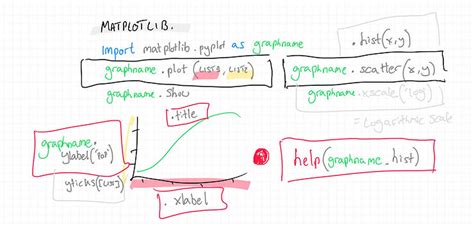 MATPLOTLIB.
Import matplotlib.pyplot as graphname
graphname.plot (LIST1, LIST2)
graphname.show
.hist(x,y)
graphname.scatter(x,y)
graphname.xscale('log')
= Logarithmic scale
.title
graphname.
ylabel('Pop')
yticks[LIST]
.xlabel
help(graphname.hist)